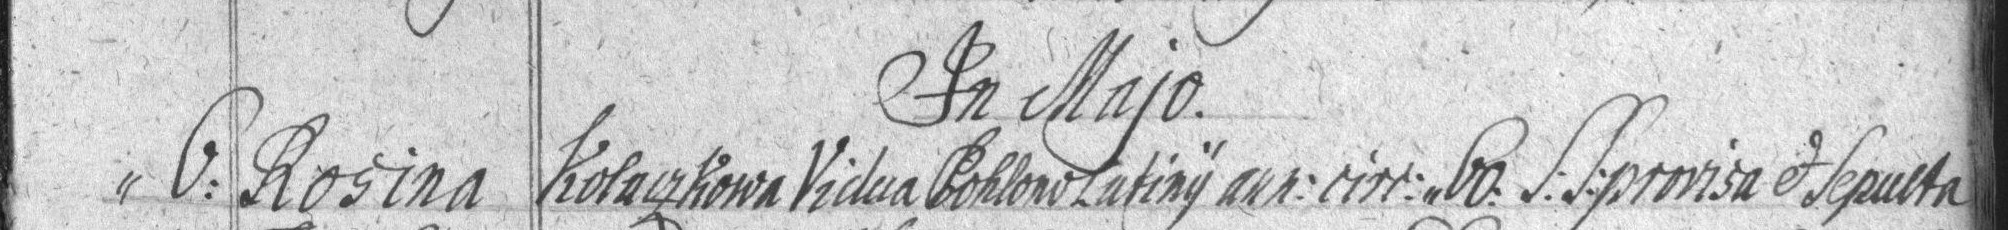 In Majo.
" 6: Rosina Kolaczkowa Vidua Pohlono Lutinÿ ann: circ: „ 60: S: S: provisa et Sepulta